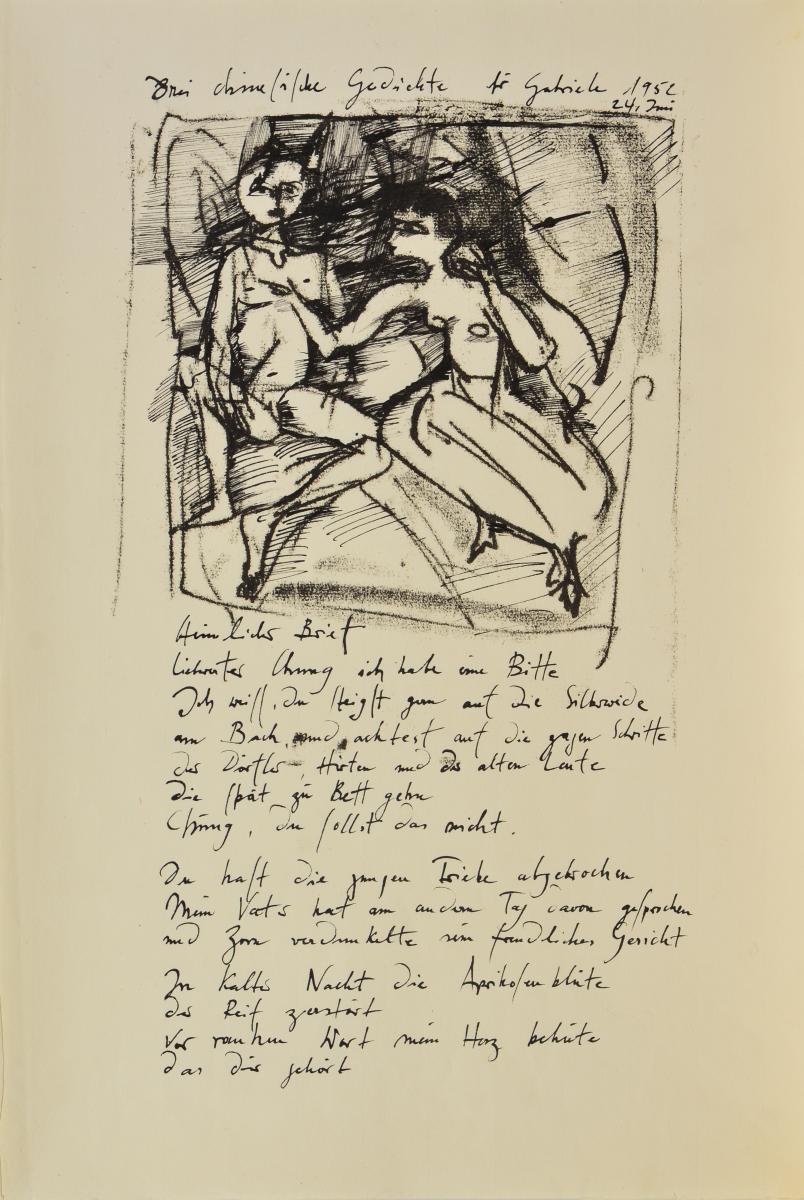 Drei chinesische Gedichte für Gabriele 1952
24. Juni
Heimlicher Brief
Liebwerter Chung ich habe eine Bitte
Ich weiss, du steigst gern auf die Silberweide
am Bach, und achtest auf die Schritte
der Dörfler, Hirten und der alten Leute
die spät zu Bett gehn
Chung, du sollst das nicht.
Du hast die jungen Triebe abgebrochen
Mein Vater hat am andern Tag davon gesprochen
und Zorn verdunkelte sein freundliches Gesicht
In kalter Nacht die Aprikosenblüte
der Reif zerstört
Vor rauhem Wort mein Herz behüte
das dir gehört